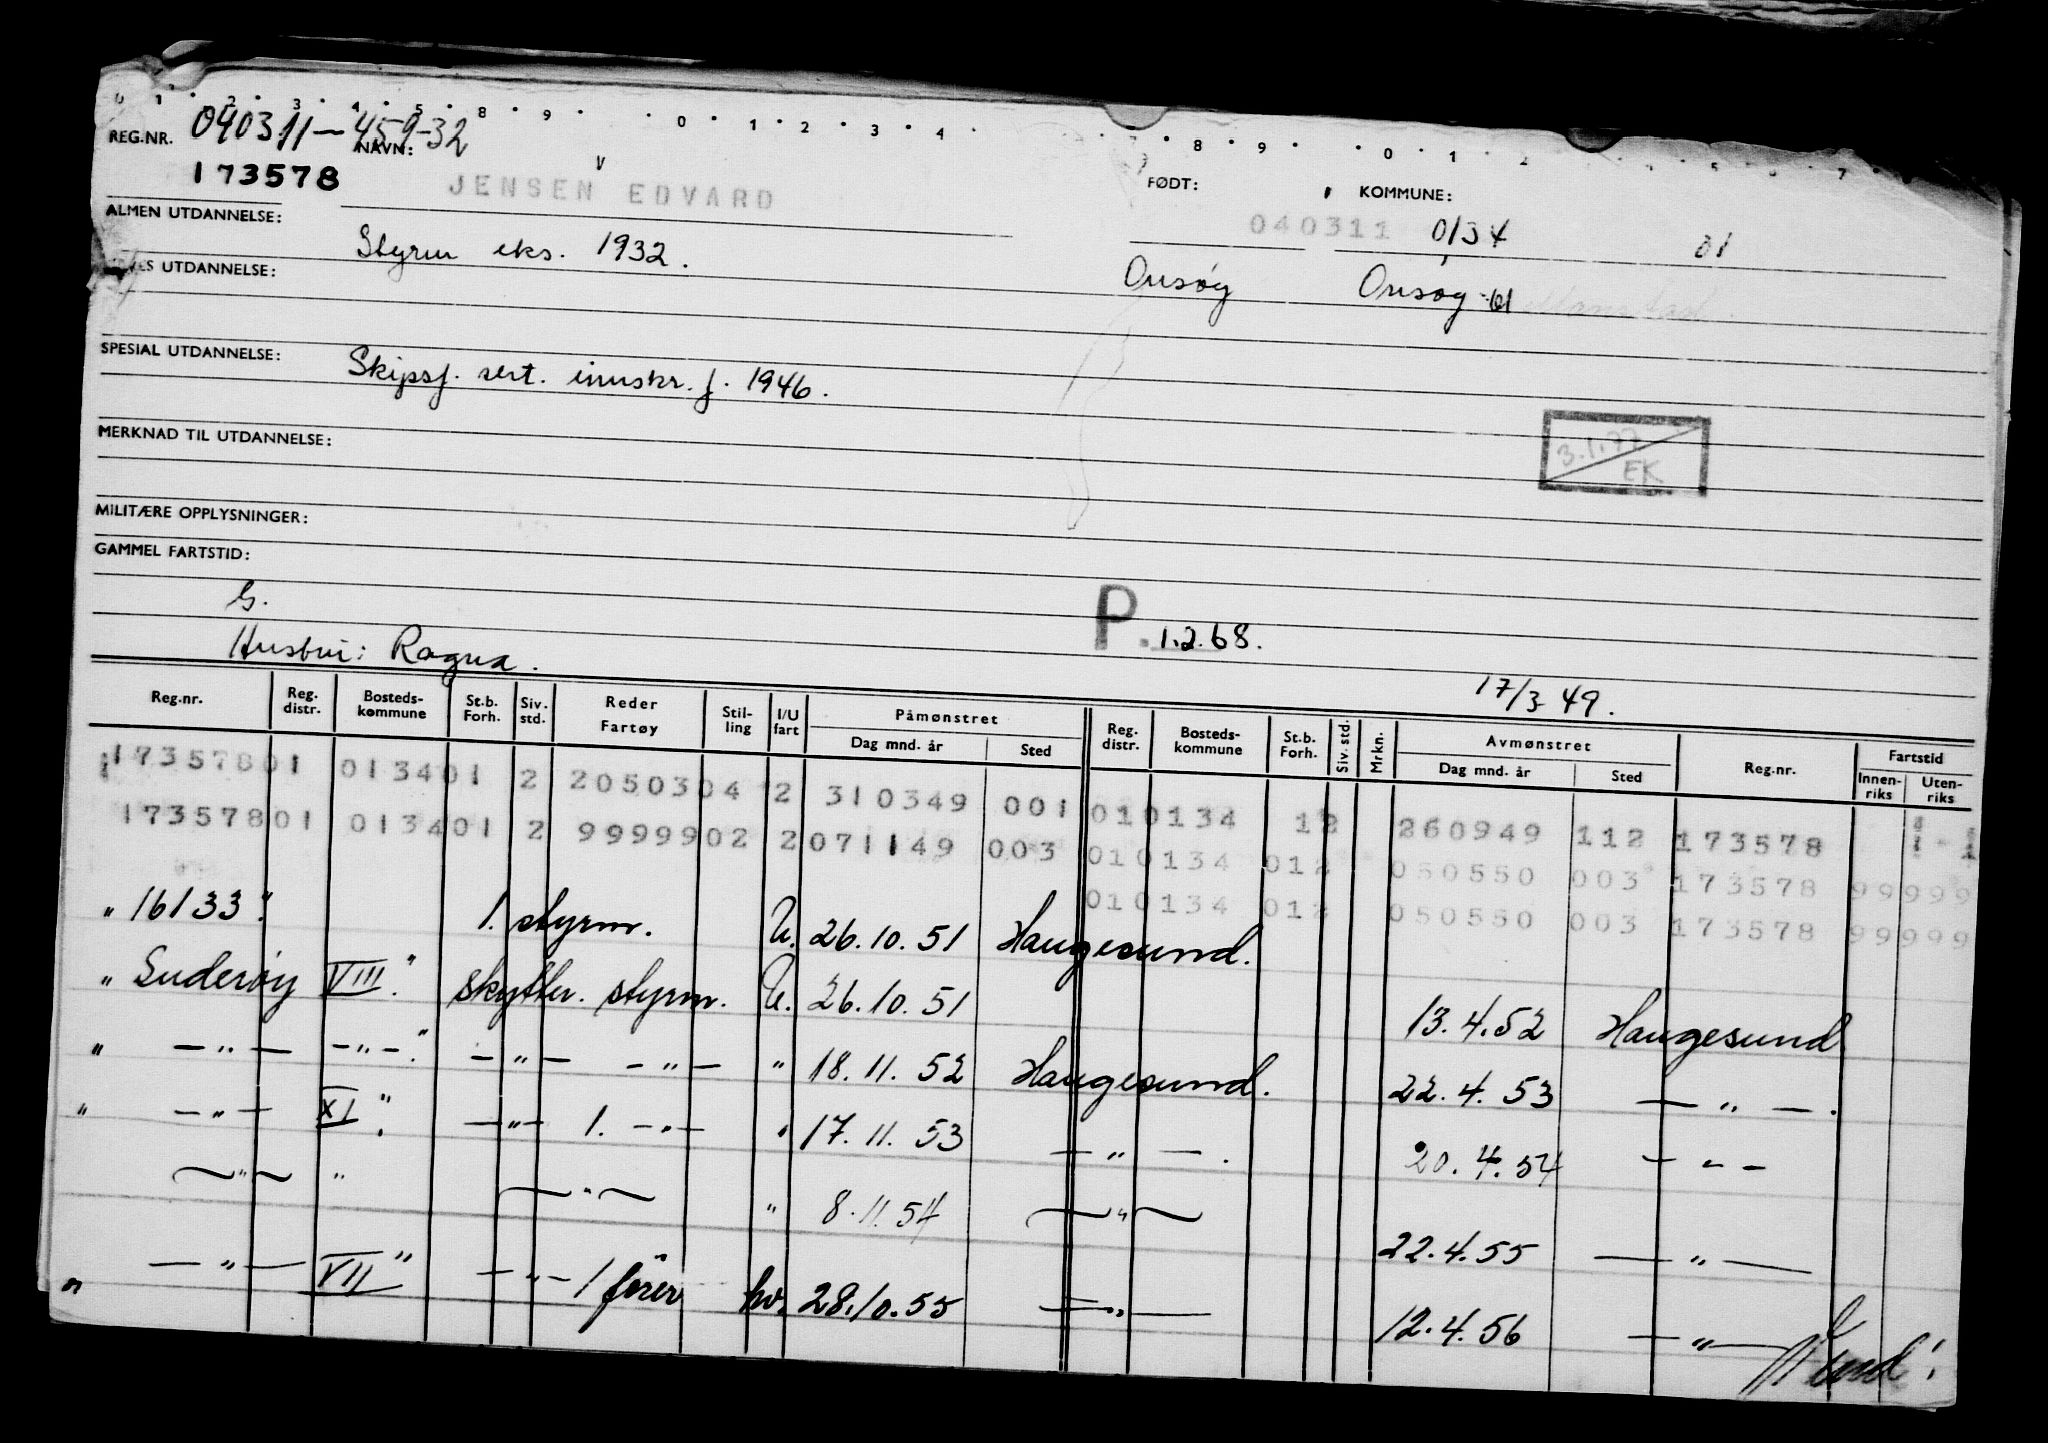 0 1 2 3 4 5 8 9 0 1 2 3 4 7 8 9 0 1 2 5 6 7
REG.NR. 040311-459-32
NAVN:
173578
JENSEN EDVARD
FØDT:
KOMMUNE:
040311 0134 01
ALMEN UTDANNELSE:
Styrm eks. 1932.
Onsøy Onsøy
UTDANNELSE:
SPESIAL UTDANNELSE:
Skipsf. sert. innskr. f. 1946.
MERKNAD TIL UTDANNELSE:
3.1.77
EK
MILITÆRE OPPLYSNINGER:
GAMMEL FARTSTID:
G.
P. 1.2.68.
Hustru: Ragna.
17/3 49.
Reg.nr. Reg. distr. Bosteds-kommune St.b. Forh. Siv. std. Reder Fartøy Stil-ling I/U fart Påmønstret Dag mnd. år Sted Reg. distr. Bosteds-kommune St.b. Forh. Siv. std. Mrkn. Avmønstret Dag mnd. år Sted Reg.nr. Fartstid Innen-riks Uten-riks
17357801 013401 2 2050304 2 310349 001 010134 12 260949 112 173578
17357801 013401 2 9999902 2 071149 003 010134 012 050550 003 173578 99999
010134 012 050550 003 173578 99999
"16133" 1. styrm. U. 26.10.51 Haugesund.
"Suderøy VIII." skytter. styrm. U. 26.10.51 13.4.52 Haugesund
" — " — — " —." — " — — " — " 18.11.52 Haugesund. 22.4.53 — " —.
" — " — XI." — " — 1. — " — " 17.11.53 — " —. 20.4.54 — " —
— " — " — " — " 8.11.54 — " — 22.4.55 — " —
" — " — VII" — " — 1 fører hv. 28.10.55 — " — 12.4.56 — " —